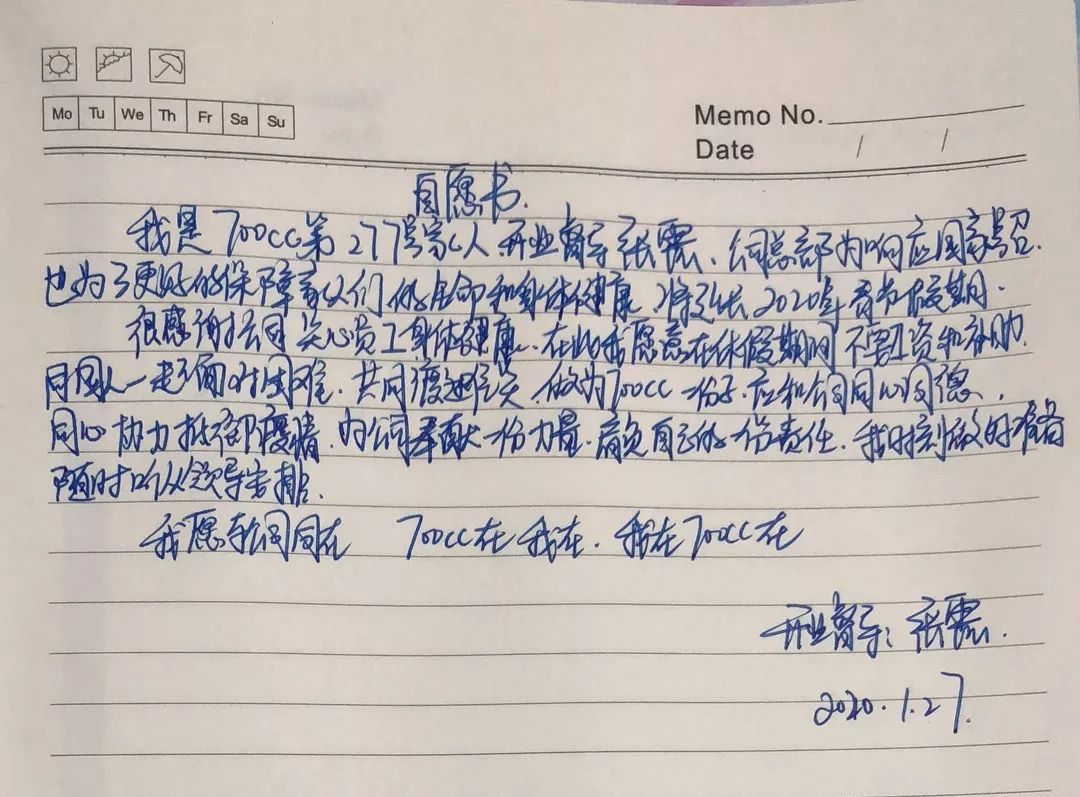 Mo Tu We Th Fr Sa Su
Memo No.
Date / /
自愿书.
我是700CC第277号家人 开业督导张震、公司总部为响应国家号召.
也为了更好的保障家人们的生命和身体健康、将延长2020年春节假期.
很感谢公司关心员工身体健康、在此我愿意在休假期间不要工资和补助.
同国人一起面对困难.共同渡过难关 做为700CC一份子.应和公司同心同德、
同心协力抵御疫情、为公司奉献一份力量、肩负自己的一份责任.我时刻做好准备
随时听从领导安排.
我愿与公司同在 700CC在我在.我在700CC在
开业督导:张震.
2020.1.27.